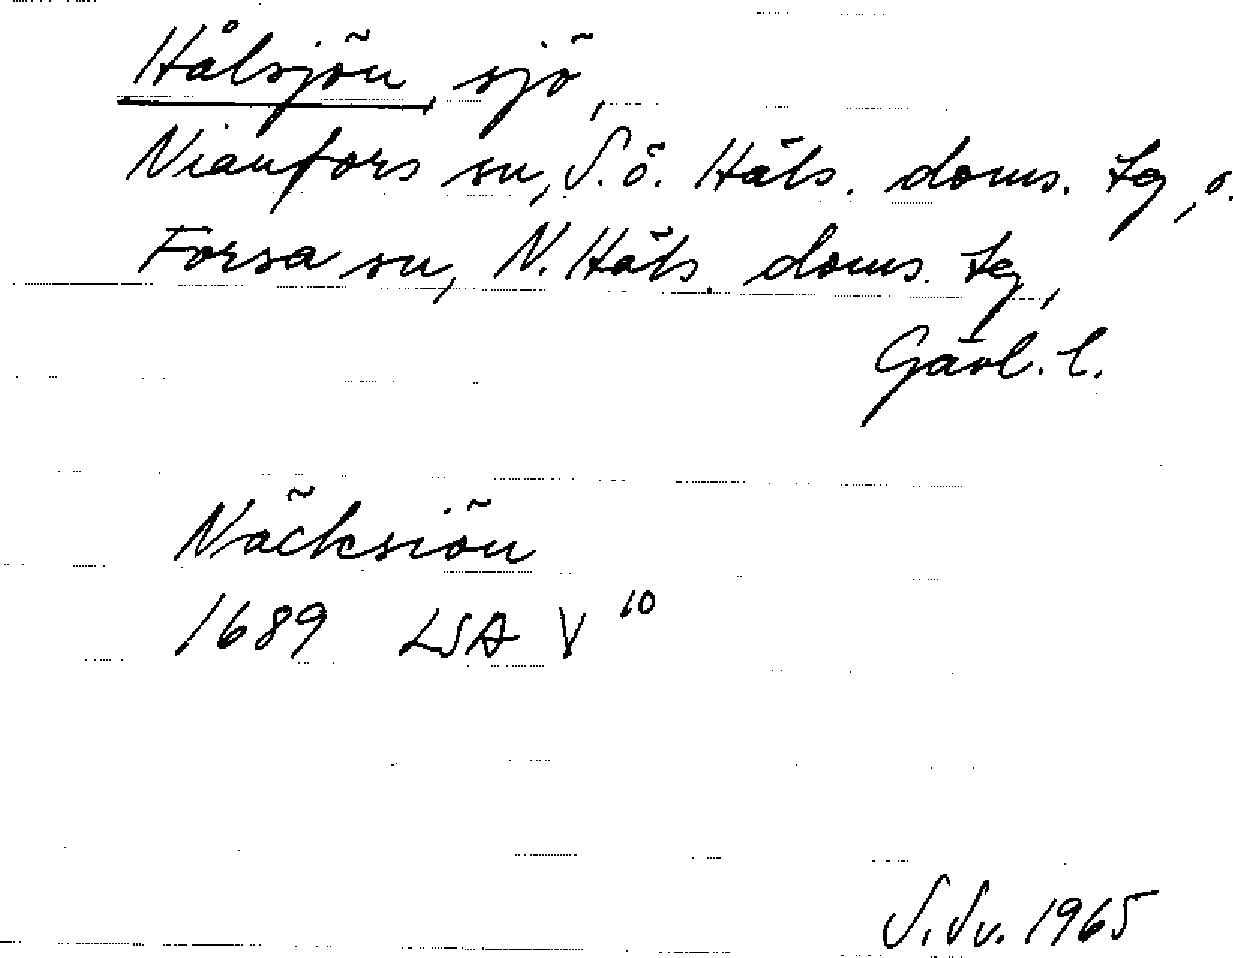 Hålsjön, sjö,
Nianfors sn, S.ö. Häls. doms. tg, o.
Forsa sn, N. Häls. doms. tg,
Gävl. l.
Näcksiön
1689 LSA V 10
S. Sv. 1965